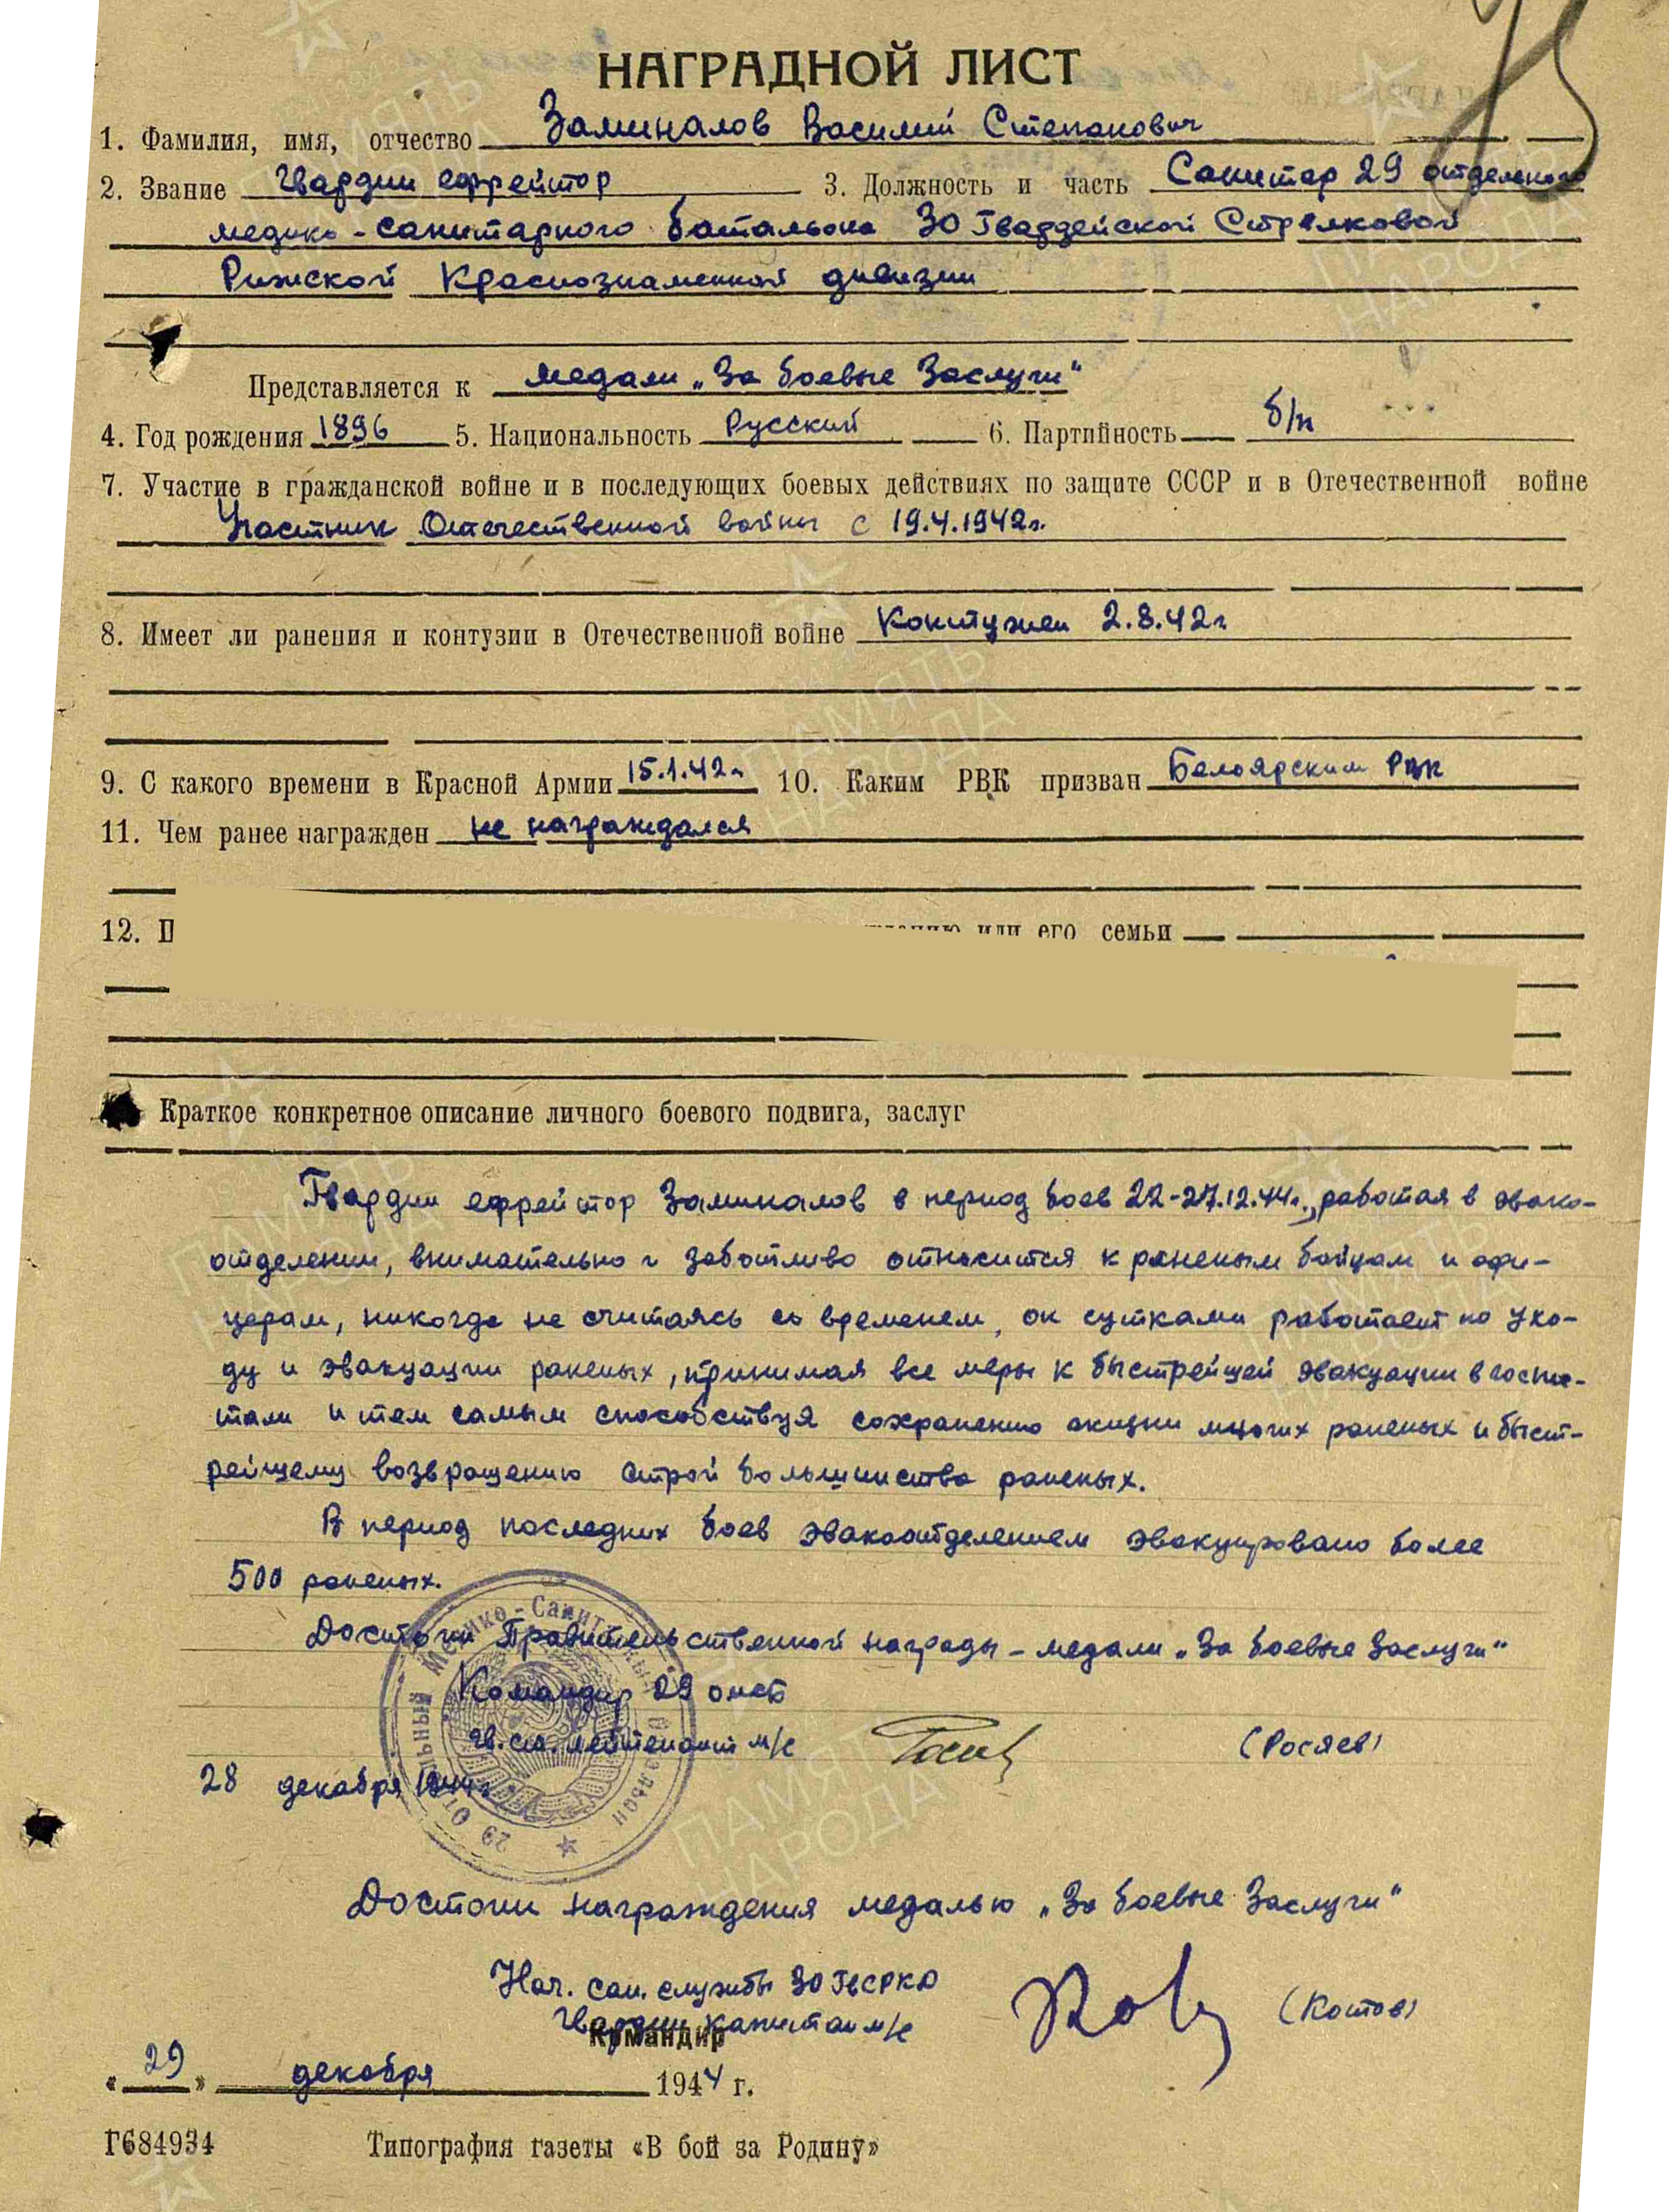 НАГРАДНОЙ ЛИСТ
1. Фамилия, имя, отчество Заминалов Василий Степанович
2. Звание Гвардии ефрейтор 3. Должность и часть Санитар 29 отдельного
медико-санитарного батальона 30 Гвардейской Стрелковой
Рижской Краснознаменной дивизии
Представляется к медали „За боевые Заслуги“
4. Год рождения 1896 5. Национальность Русский 6. Партийность б/п
7. Участие в гражданской войне и в последующих боевых действиях по защите СССР и в Отечественной войне
Участник Отечественной войны с 19.4.1942г.
8. Имеет ли ранения и контузии в Отечественной войне Контужен 2.8.42г
9. С какого времени в Красной Армии 15.1.42г 10. Каким РВК призван Белоярским РВК
11. Чем ранее награжден не награждался
12. П или его семьи
Краткое конкретное описание личного боевого подвига, заслуг
Гвардии ефрейтор Заминалов в период боев 22-27.12.44г., работая в эвако-
отделении, внимательно и заботливо относится к раненым бойцам и офи-
церам, никогда не считаясь со временем, он сутками работает по ухо-
ду и эвакуации раненых, принимая все меры к быстрейшей эвакуации в госпи-
тали и тем самым способствуя сохранению жизни многих раненых и быст-
рейшему возвращению строй большинства раненых.
В период последних боев эвакоотделением эвакуировано более
500 раненых.
Достоин Правительственной награды - медали „За боевые Заслуги“
Командир 29 омсб
гв. ст. лейтенант м/с (Росяев)
28 декабря 1944г
29 Отдельный Медико-Санитарный Батальон
Достоин награждения медалью „За боевые Заслуги“
Нач. сан. службы 30 ГвСРКД
Гвардии капитан м/с (Котов)
Командир
„29“ декабря 1944 г.
Г684934 Типография газеты «В бой за Родину»
ПАМЯТЬ НАРОДА